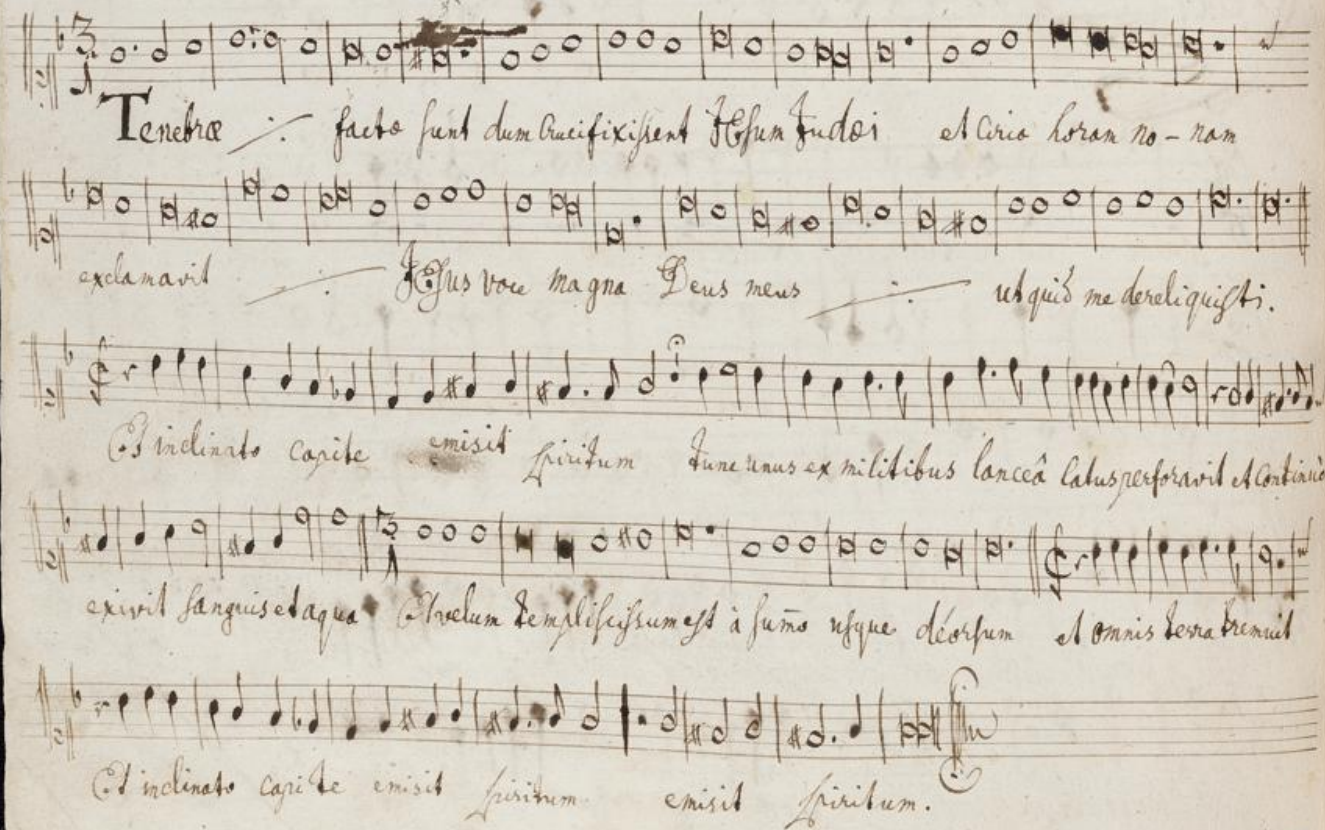 Tenebræ ./. factæ sunt dum Crucifixissent JEsum Judæi et circa horam no - nam
exclamavit ./. JEsus voce magna Deus meus ./. ut quid me dereliquisti.
Et inclinato capite emisit spiritum tunc unus ex militibus lanceâ latus perforavit et continuò
exivit sanguis et aqua Et velum templi scissum est à sum̄o usque deorsum et omnis terra tremuit
Et inclinato capite emisit spiritum emisit spiritum.